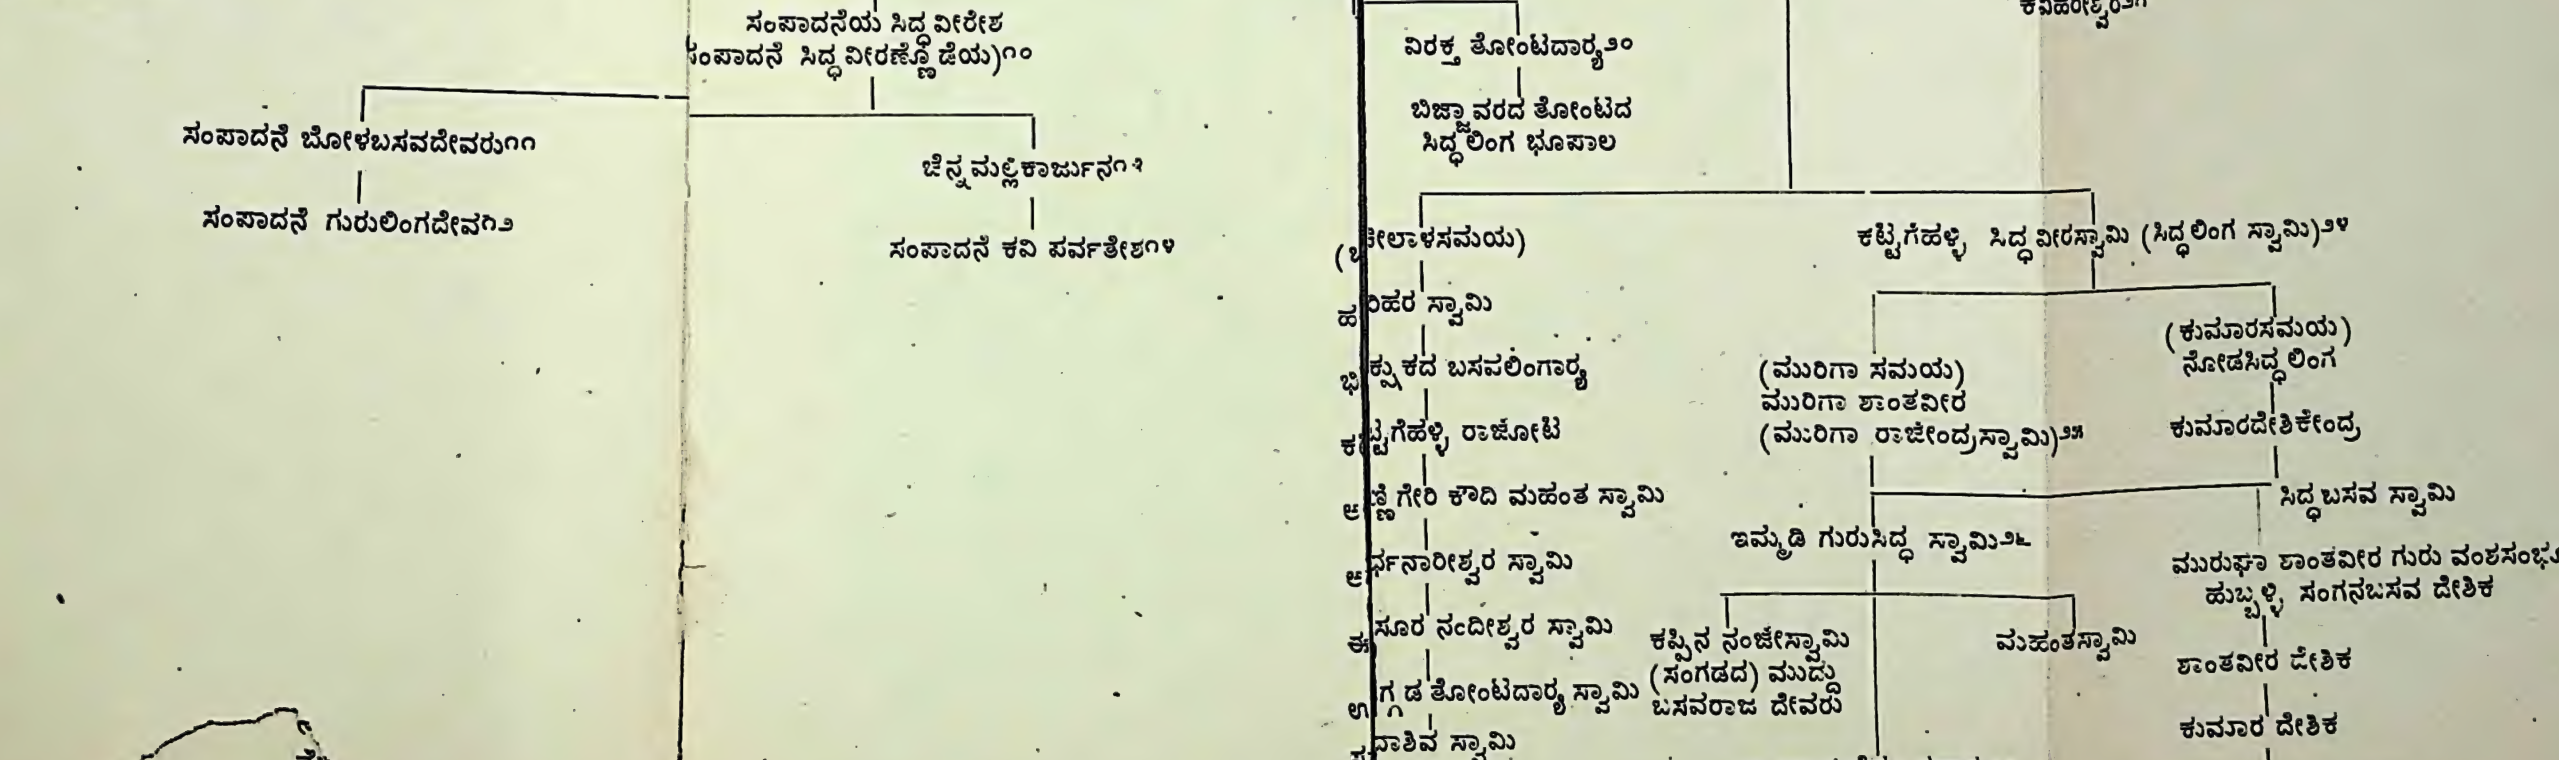 ಸಂಪಾದನೆಯ ಸಿದ್ಧವೀರೇಶ
ಸಂಪಾದನೆ ಸಿದ್ಧವೀರಣ್ಣೊಡೆಯ)೧೦
ಸಂಪಾದನೆ ಬೋಳಬಸವದೇವರು೧೧
ಸಂಪಾದನೆ ಗುರುಲಿಂಗದೇವ೧೨
ಚೆನ್ನಮಲ್ಲಿಕಾರ್ಜುನ೧೩
ಸಂಪಾದನೆ ಕವಿ ಪರ್ವತೇಶ೧೪
ವಿರಕ್ತ ತೋಂಟದಾರ್‍ಯ೨೦
ಬಿಜ್ಜಾವರದ ತೋಂಟದ
ಸಿದ್ಧಲಿಂಗ ಭೂಪಾಲ
ಹರಿಹರ ಸ್ವಾಮಿ
ಭಿಕ್ಷುಕದ ಬಸವಲಿಂಗಾರ್‍ಯ
ಕಟ್ಟಗೆಹಳ್ಳಿ ರಾಜೋಟಿ
ಅಣ್ಣಿಗೇರಿ ಕೌದಿ ಮಹಂತ ಸ್ವಾಮಿ
ಅರ್ಧನಾರೀಶ್ವರ ಸ್ವಾಮಿ
ಈಸೂರ ನಂದೀಶ್ವರ ಸ್ವಾಮಿ
ಉಗ್ಗಡ ತೋಂಟದಾರ್‍ಯ ಸ್ವಾಮಿ
ಸದಾಶಿವ ಸ್ವಾಮಿ
ಕಟ್ಟಗೆಹಳ್ಳಿ ಸಿದ್ಧವೀರಸ್ವಾಮಿ (ಸಿದ್ಧಲಿಂಗ ಸ್ವಾಮಿ)೨೪
(ಮುರಿಗಾ ಸಮಯ)
ಮುರಿಗಾ ಶಾಂತವೀರ
(ಮುರಿಗಾ ರಾಜೇಂದ್ರಸ್ವಾಮಿ)೨೫
ಇಮ್ಮಡಿ ಗುರುಸಿದ್ಧ ಸ್ವಾಮಿ೨೬
ಕಪ್ಪಿನ ನಂಜೇಸ್ವಾಮಿ
(ಸಂಗಡದ) ಮುದ್ದು
ಬಸವರಾಜ ದೇವರು
ಮಹಂತಸ್ವಾಮಿ
(ಕುಮಾರಸಮಯ)
ನೋಡಸಿದ್ಧಲಿಂಗ
ಕುಮಾರದೇಶಿಕೇಂದ್ರ
ಸಿದ್ಧಬಸವ ಸ್ವಾಮಿ
ಮುರುಘಾ ಶಾಂತವೀರ ಗುರು
ಹುಬ್ಬಳ್ಳಿ ಸಂಗನಬಸವ ದೇಶಿಕ
ಶಾಂತವೀರ ದೇಶಿಕ
ಕುಮಾರ ದೇಶಿಕ